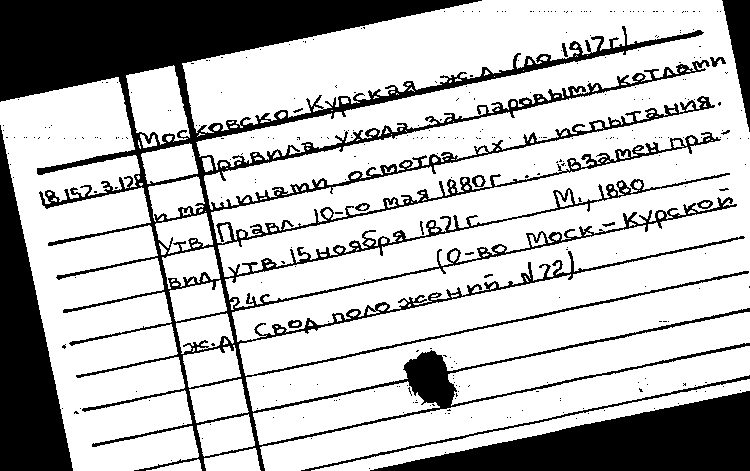 Московско-Курская ж.д. (до 1917 г.)
18.157.3.128. Правила ухода за паровыми котлами
и машинами, осмотра их и испытания.
Утв. Правл. 10-го мая 1880 г... (взамен пра-
вил, утв. 15 ноября 1871 г. М., 1880
24 с. (О-во Моск.-Курской
ж.д. Свод положений. №72).